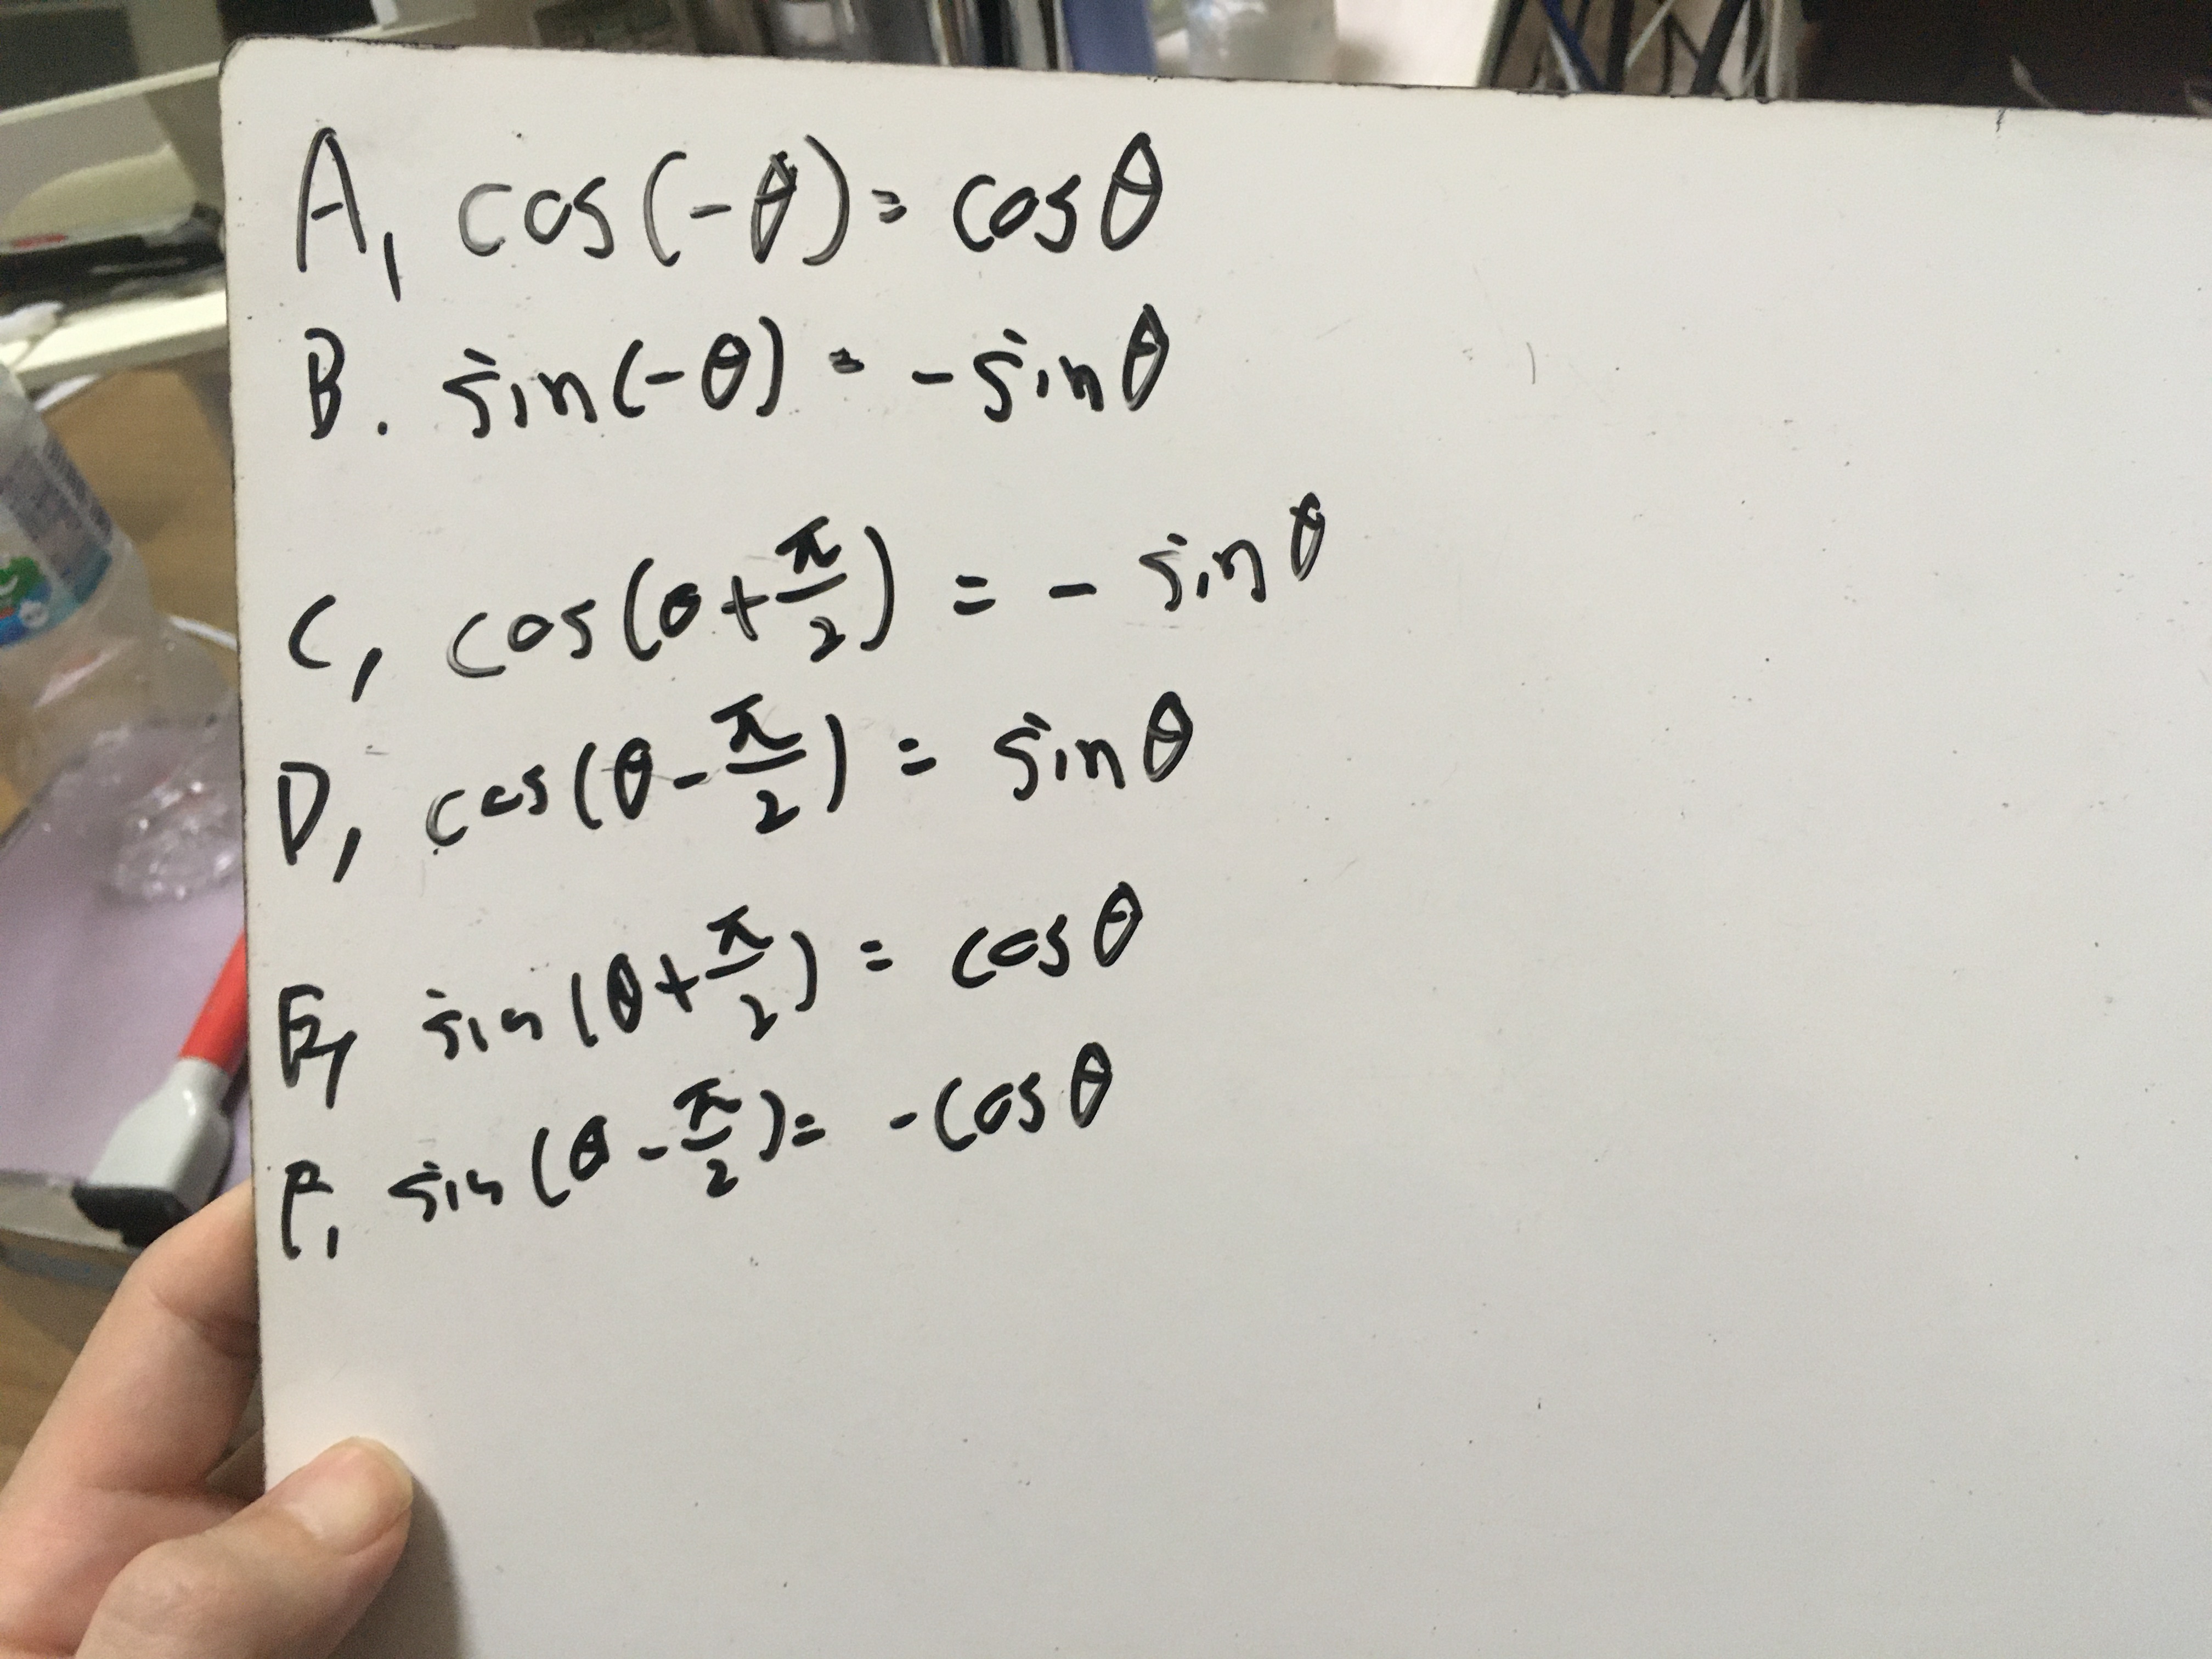 A, cos(-θ)= cosθ
B. sin(-θ) = -sinθ
C, cos(θ+π/2) = - sinθ
D, cos(θ-π/2) = sinθ
E, sin(θ+π/2) = cosθ
F, sin(θ-π/2)= -cosθ